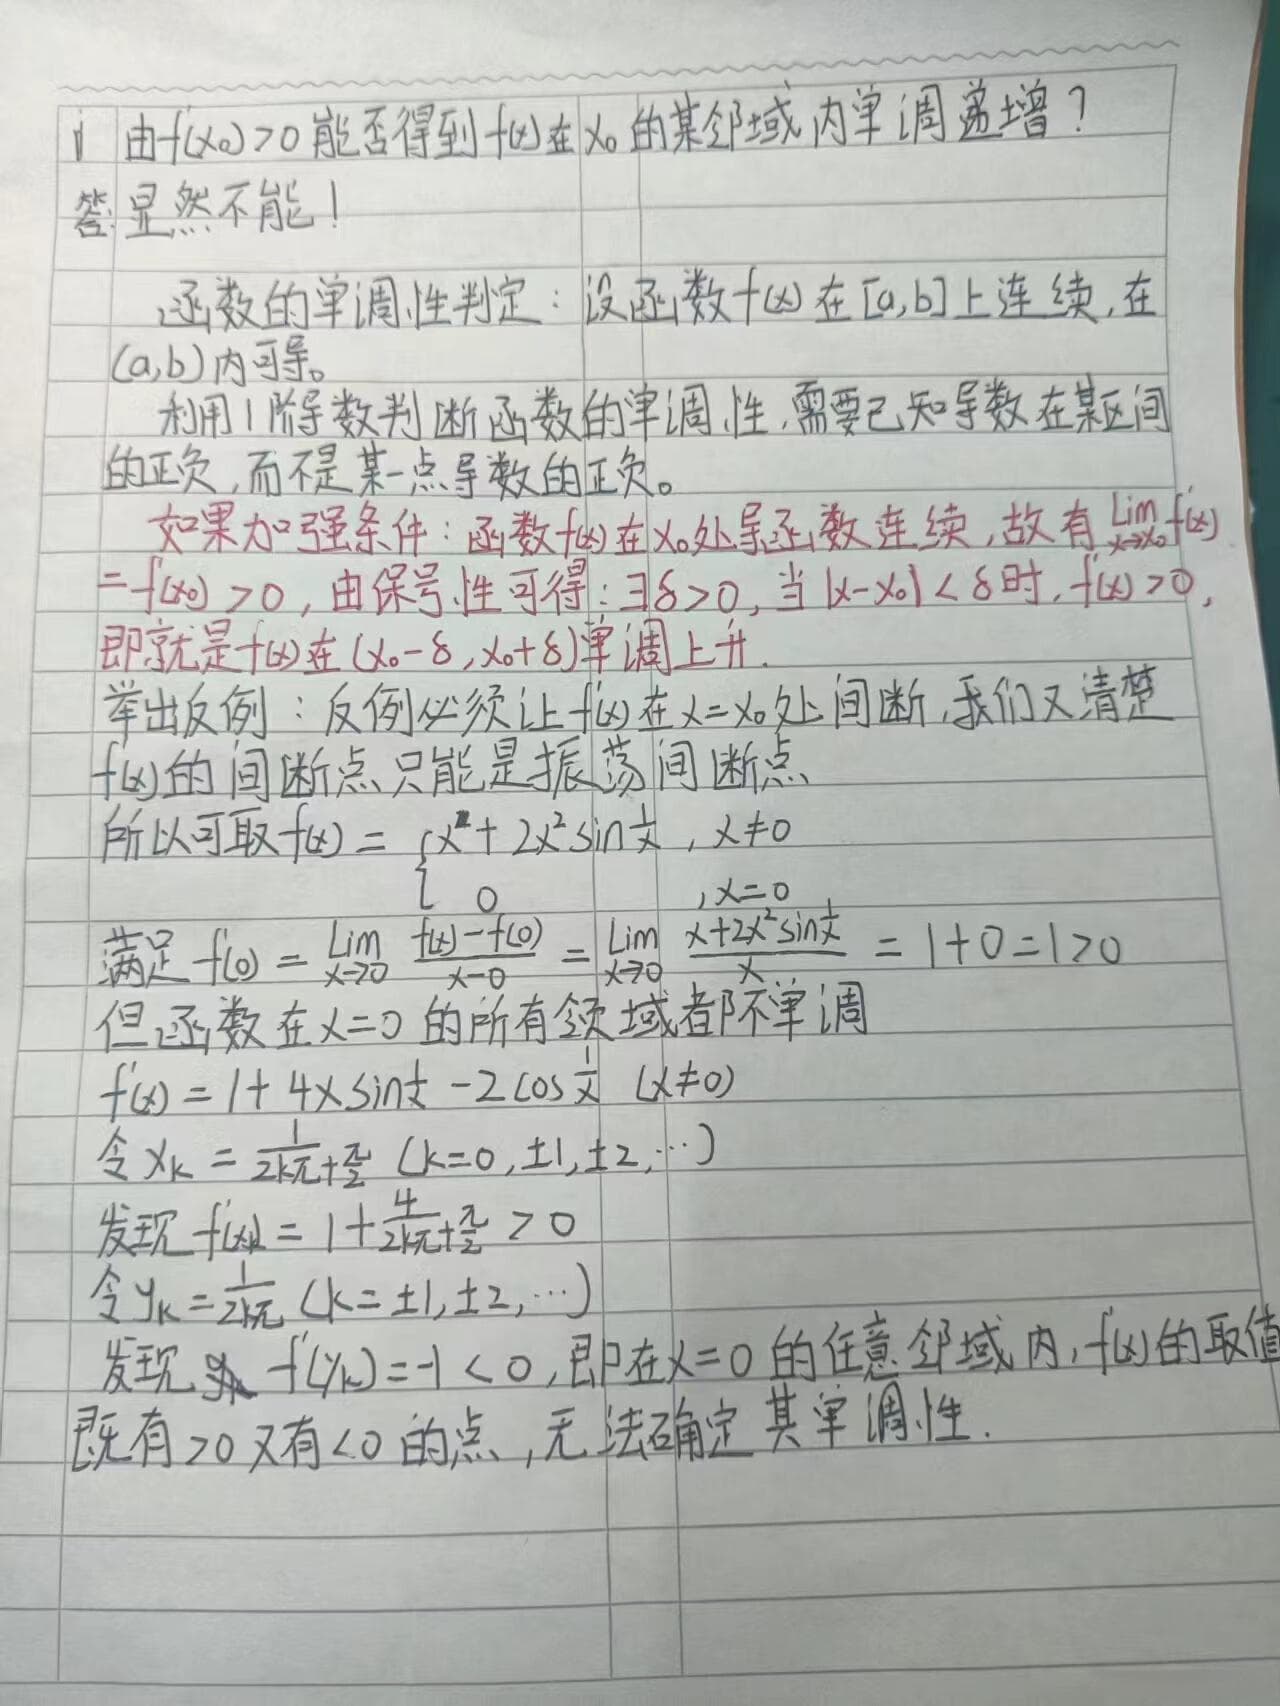 i 由f'(x₀)>0能否得到f(x)在x₀的某邻域内单调递增?
答:显然不能!
函数的单调性判定:设函数f(x)在[a,b]上连续,在
(a,b)内可导。
利用1阶导数判断函数的单调性,需要已知导数在某区间
的正负,而不是某一点导数的正负。
如果加强条件:函数f(x)在x₀处导函数连续,故有 Lim x→x₀ f'(x)
=f'(x₀)>0,由保号性可得:∃δ>0,当|x-x₀|<δ时,f'(x)>0,
即就是f(x)在(x₀-δ,x₀+δ)单调上升.
举出反例:反例必须让f'(x)在x=x₀处间断,我们又清楚
f'(x)的间断点只能是振荡间断点
所以可取f(x)= { x+2x²sin1/x ,x≠0
0 ,x=0
满足f'(0)= Lim x→0 (f(x)-f(0))/(x-0) = Lim x→0 (x+2x²sin1/x)/x =1+0=1>0
但函数在x=0的所有领域都不单调
f'(x)=1+4xsin1/x-2cos1/x (x≠0)
令xₖ=1/(2kπ+π/2) (k=0,±1,±2,…)
发现f'(xₖ)=1+4/(2kπ+π/2)>0
令yₖ=1/2kπ (k=±1,±2,…)
发现 f'(yₖ)=-1<0,即在x=0的任意邻域内,f'(x)的取值
既有>0又有<0的点,无法确定其单调性.